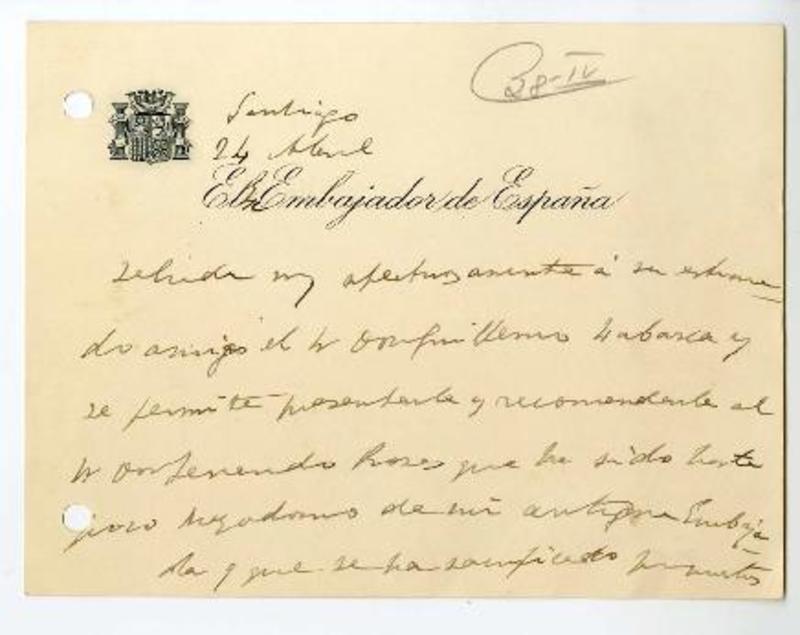 28-IV
Santiago
24 Abril
El Embajador de España
saluda muy afectuosamente á su estima-
do amigo el Sr Don Guillermo Labarca y
se permite presentarle y recomendarle al
Sr Don Fernando Roses que ha sido hasta
poco mayodomo de mi antigua Embaja-
da y que se ha sacrificado